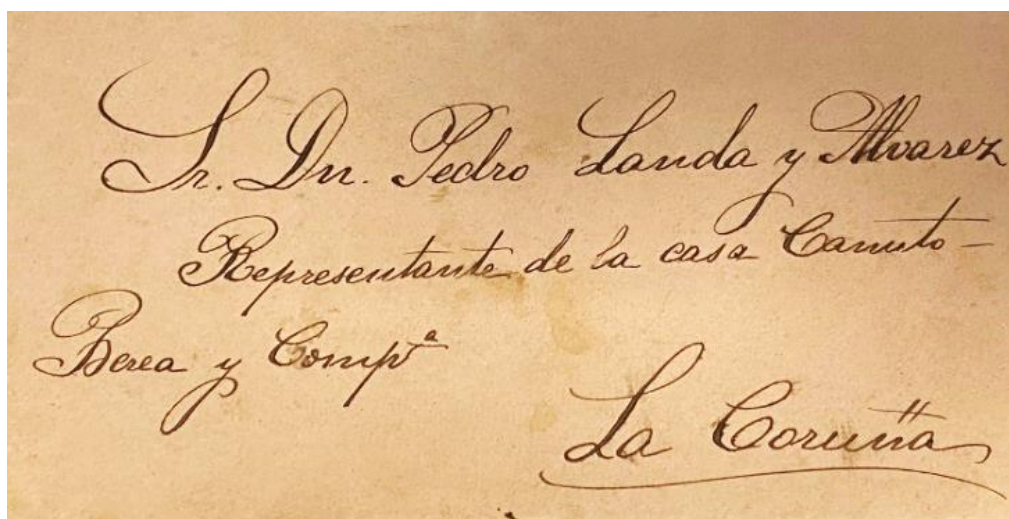 Sr. Dn. Pedro Landa y Alvarez
Representante de la casa Canuto-
Berea y Compª
La Coruña